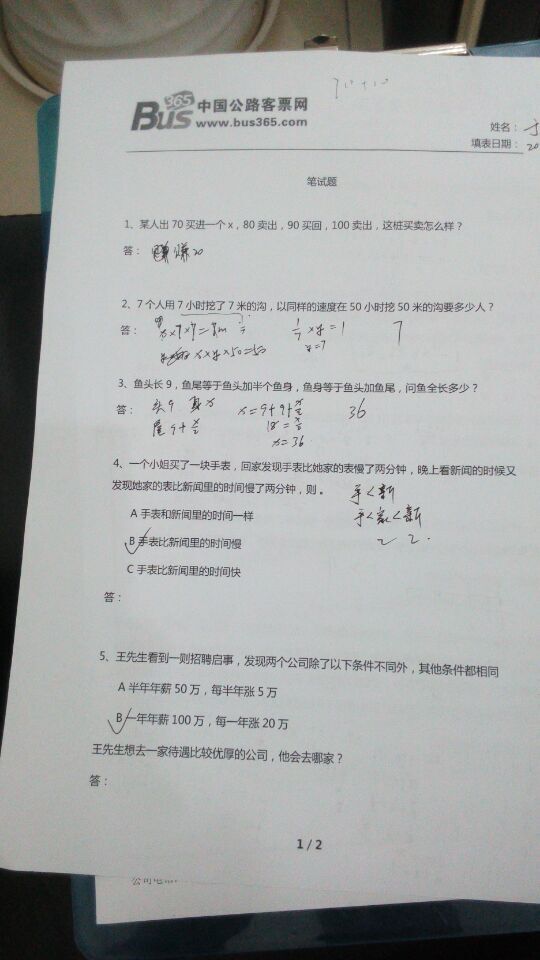 710+10
Bus 365 中国公路客票网
www.bus365.com
姓名：
填表日期：20
笔试题
1、某人出 70 买进一个 x，80 卖出，90 买回，100 卖出，这桩买卖怎么样？
答： 赚20
2、7 个人用 7 小时挖了 7 米的沟，以同样的速度在 50 小时挖 50 米的沟要多少人？
答：
1/7 × y = 1 7
x × y × 50 = 50 y=7
3、鱼头长 9，鱼尾等于鱼头加半个鱼身，鱼身等于鱼头加鱼尾，问鱼全长多少？
答： 头9 身x x=9+9+x/2 36
尾9+x/2 18=x/2
x=36
4、一个小姐买了一块手表，回家发现手表比她家的表慢了两分钟，晚上看新闻的时候又
发现她家的表比新闻里的时间慢了两分钟，则 。 手<新
A 手表和新闻里的时间一样 手<家<新
B 手表比新闻里的时间慢 2 2.
C 手表比新闻里的时间快
答：
5、王先生看到一则招聘启事，发现两个公司除了以下条件不同外，其他条件都相同
A 半年年薪 50 万，每半年涨 5 万
B 一年年薪 100 万，每一年涨 20 万
王先生想去一家待遇比较优厚的公司，他会去哪家？
答：
1 / 2
公司电话: